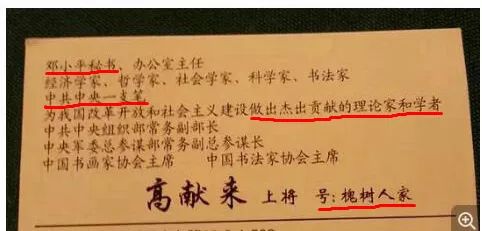 邓小平秘书、办公室主任
经济学家、哲学家、社会学家、科学家、书法家
中共中央一支笔
为我国改革开放和社会主义建设做出杰出贡献的理论家和学者
中共中央组织部常务副部长
中央军委总参谋部常务副总参谋长
中国书画家协会主席 中国书法家协会主席
高献来 上将 号:槐树人家